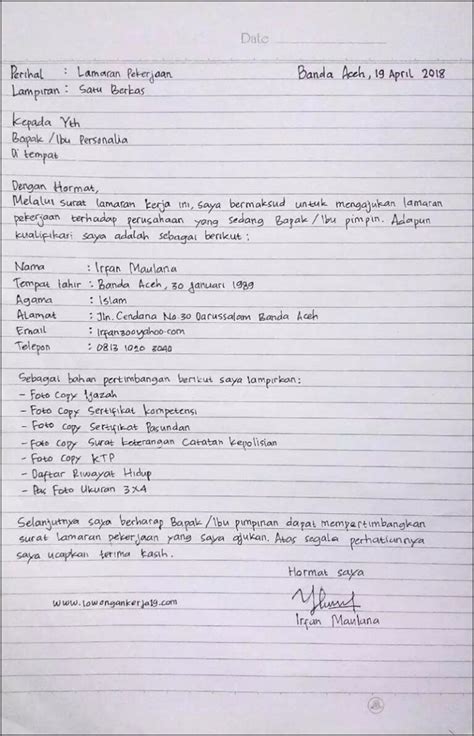 Date
Perihal : Lamaran Pekerjaan Banda Aceh, 19 April 2018
Lampiran : Satu Berkas
Kepada Yth
Bapak / Ibu Personalia
Di tempat
Dengan Hormat,
Melalui surat lamaran kerja ini, saya bermaksud untuk mengajukan lamaran
pekerjaan terhadap perusahaan yang sedang Bapak / Ibu pimpin. Adapun
kualifikasi saya adalah sebagai berikut :
Nama : Irfan Maulana
Tempat lahir : Banda Aceh, 30 Januari 1989
Agama : Islam
Alamat : Jln. Cendana No.30 Darussalam Banda Aceh
Email : Irfan300yahoo.com
Telepon : 0813 1020 3040
Sebagai bahan pertimbangan berikut saya lampirkan:
- Foto Copy Ijazah
- Foto Copy Sertifikat Kompetensi
- Foto Copy Sertifikat Pasundan
- Foto Copy Surat Keterangan Catatan Kepolisian
- Foto Copy KTP
- Daftar Riwayat Hidup
- Pas Foto Ukuran 3x4
Selanjutnya saya berharap Bapak / Ibu pimpinan dapat mempertimbangkan
surat lamaran pekerjaan yang saya ajukan. Atas segala perhatiannya
saya ucapkan terima kasih.
Hormat saya
www.lowongankerja19.com
Irfan Maulana